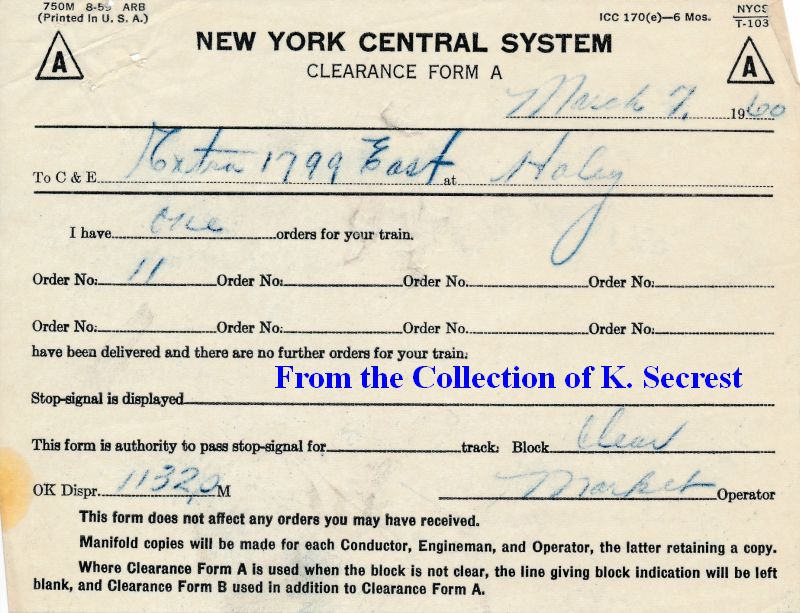 750M 8-59 ARB
(Printed in U. S. A.)
ICC 170(e)—6 Mos.
NYCS
T-103
A
NEW YORK CENTRAL SYSTEM
A
CLEARANCE FORM A
March 7, 1960
To C & E Extra 1799 East at Haley
I have one orders for your train.
Order No. 11 Order No. Order No. Order No.
Order No. Order No. Order No. Order No.
have been delivered and there are no further orders for your train.
From the Collection of K. Secrest
Stop-signal is displayed
This form is authority to pass stop-signal for track. Block Clear
OK Dispr. 1132 M Market Operator
This form does not affect any orders you may have received.
Manifold copies will be made for each Conductor, Engineman, and Operator, the latter retaining a copy.
Where Clearance Form A is used when the block is not clear, the line giving block indication will be left
blank, and Clearance Form B used in addition to Clearance Form A.